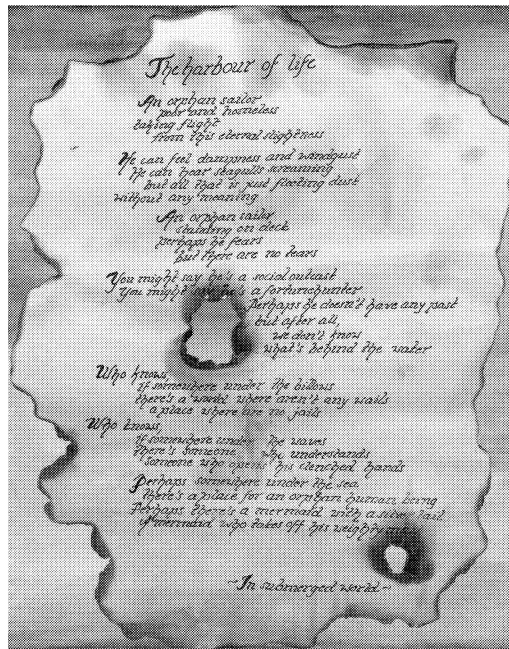 The harbour of life
An orphan sailor
poor and homeless
taking flight
from this eternal slightness
He can feel dampness and windgust
He can hear seagulls screaming
but all that is just floating dust
without any meaning
An orphan sailor
standing on deck
perhaps he fears
but there are no tears
You might say he's a social outcast
You might say he's a fortunehunter
Perhaps he doesn't have any past
but after all,
we don't know
what's behind the water
Who knows,
if somewhere under the billows
there's a world where aren't any wails
a place where are no jails
Who knows,
if somewhere under the waves
there's someone who understands
someone who opens his clenched hands
Perhaps somewhere under the sea
there's a place for an orphan human being
Perhaps there's a mermaid with a silver tail
a mermaid who takes off his weighty
~In submerged world~